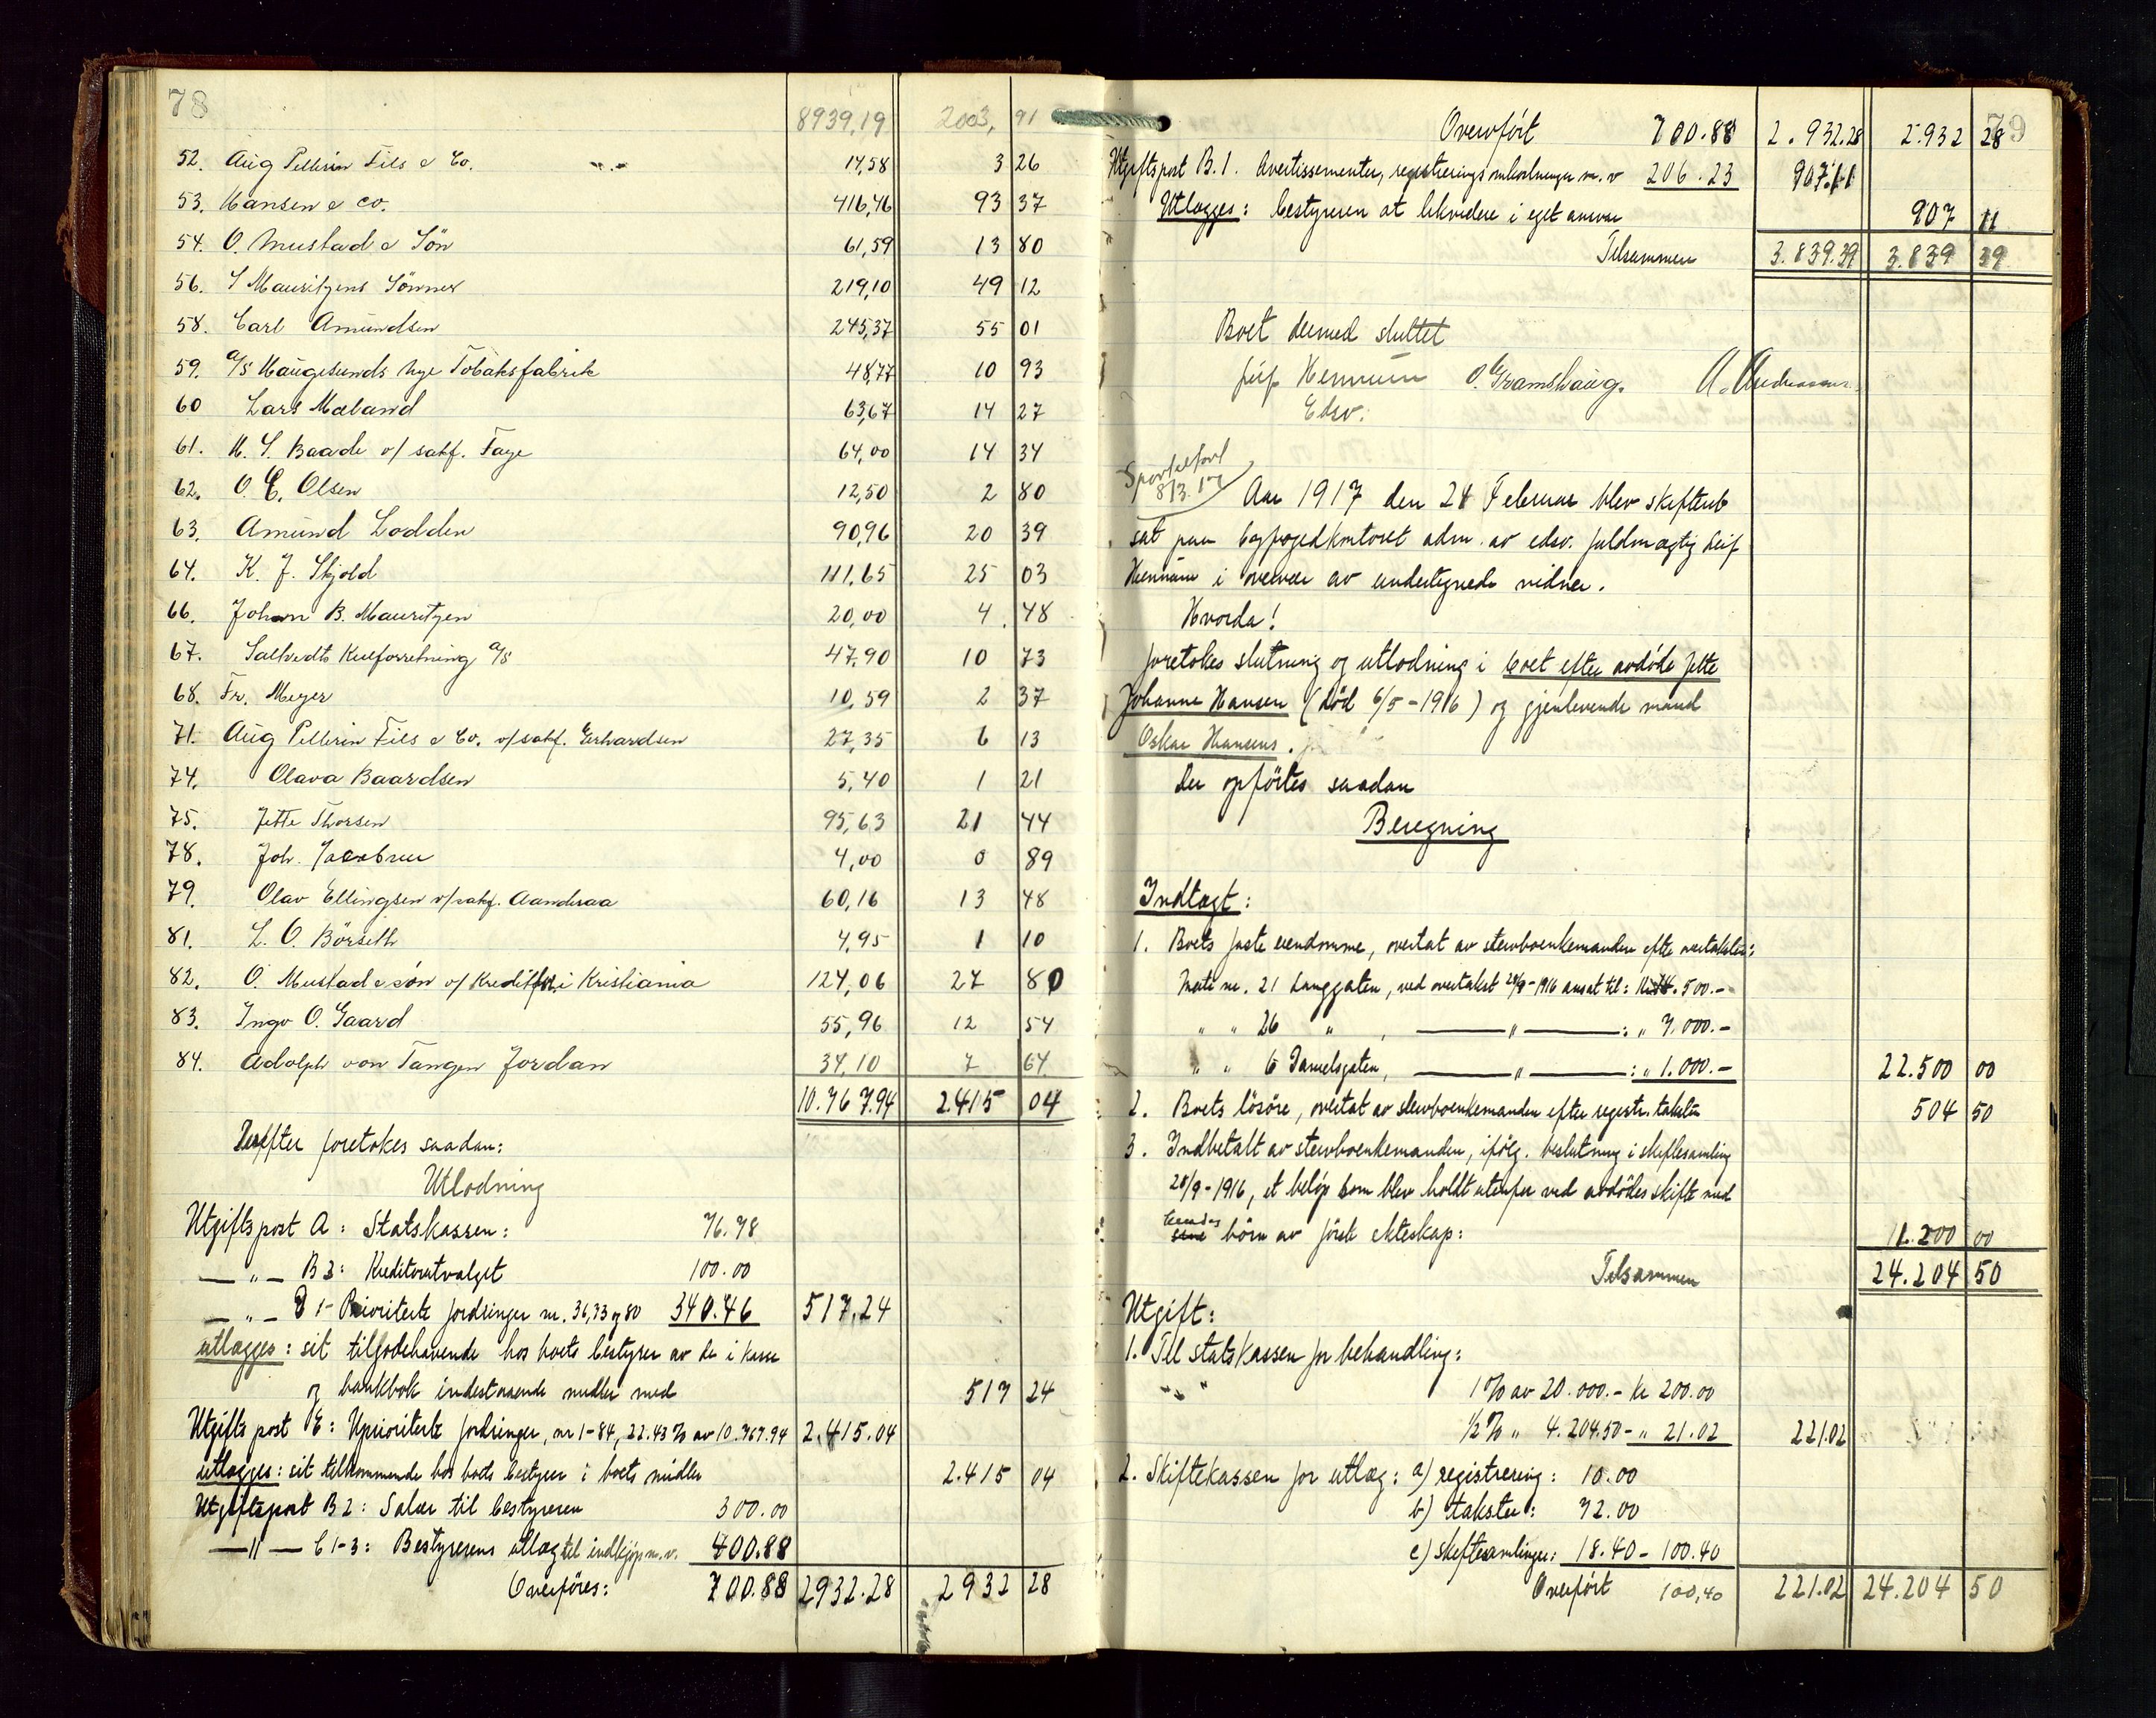 78
8939,19 2003, 91
52. Aug Pellerin Fils & Co. 14,58 3 26
53. Hansen & Co. 416,46 93 37
54. O. Mustad & Sön 61,59 13 80
56. S Mauritzens Sönner 219,10 49 12
58. Carl Amundsen 245,37 55 01
59. A/S Haugesunds nye Tobaksfabrik 48,77 10 93
60 Lars Mæland 63,67 14 27
61. H. S. Baade v/ sakf. Faye 64,00 14 34
62. O. E. Olsen 12,50 2 80
63. Amund Lodden 90,96 20 39
64. K. J. Skjold 111,65 25 03
66. Johan B. Mauritzen 20,00 4 48
67. Saltvedts Kulforretning A/S 47,90 10 73
68. Fr. Meyer 10,59 2 37
71. Aug Pellerin Fils & Co. v/sakf. Gerhardsen 27,35 6 13
74. Olava Baardsen 5,40 1 21
75. Jette Thorsen 95,63 21 44
78. Joh. Jacobsen 4,00 0 89
79. Olav Ellingsen v/sakf. Aanderaa 60,16 13 48
81. L. O. Börseth 4,95 1 10
82. O. Mustad & sön v/ Kreditfor. i Kristiania 124,06 27 80
83. Ingv O. Gaard 55,96 12 54
84. Adolph von Tangen Jordan 34,10 7 64
10.767.94 2.415 04
Derefter foretokes saadan:
Utlodning
Utgiftspost A: Statskassen: 76.78
— " — B 3: Kreditorutvalget 100.00
— " — D 1- Prioriterte fordringer nr. 36, 73 og 80 340.46 517.24
utlægges: sit tilgodehavende hos boets bestyrer av de i kasse
og bankbok indestaaende midler med 517 24
Utgiftspost E: Uprioriterte fordringer, nr 1-84, 22.43 % av 10.767.94 2.415.04
utlægges: sit tilkommende hos boets bestyrer i boets midler 2.415 04
Utgiftspost B 2: Salær til bestyreren 300.00
— " — C 1-3: Bestyrerens utlæg til indkjøp m.v. 400.88
Overföres: 700.88 2932.28 2932 28
79
Overført 700.88 2.932.28 2.932 28
Utgiftspost B.1. Avertissementer, registreringsomkostninger m.v 206.23 907.11
Utlægges: bestyreren at likvidere i eget ansvar 907 11
Tilsammen 3.839.39 3.839 39
Boet dermed sluttet
Leif Hennum O. Gramshaug. A. Andreassen
Edsv.
Sportelført
8/3.17
Aar 1917 den 28 Februar blev skifteret
sat paa byfogedkontoret adm. av edsv. fuldmægtig Leif
Hennum i overvær av undertegnede vidner.
Hvorda!
foretokes slutning og utlodning i boet efter avdøde Jette
Johanne Hansen (død 6/5-1916) og gjenlevende mand
Oskar Hansens.
Der opførtes saadan
Beregning
Indtægt:
1. Boets faste eiendomme, overtat av stervboenkemanden efter overtaksten:
Matr. nr. 21 Langgaten, ved overtakst 29/8-1916 ansat til: 500.-
" " 26 " , — " — : " 7.000.-
" " 6 Daniels gaten, — " — : " 1.000.- 22.500 00
2. Boets lösöre, overtat av stervboenkemanden efter registr. taksten 504 50
3. Indbetalt av stervboenkemanden, ifölg. beslutning i skiftesamling
28/9-1916, et belöp som blev holdt utenfor ved avdödes skifte med
hendes börn av förste ekteskap: 1.200 00
Tilsammen 24.204 50
Utgift:
1. Til statskassen for behandling:
1 % av 20.000.- kr 200.00
1/2 % " 4.204.50 - " 21.02 221.02
2. Skiftekassen for utlæg: a) registrering: 10.00
b) takster: 72.00
c) skiftesamlinger: 18.40 - 100.40
Overfört 100,40 221.02 24.204 50